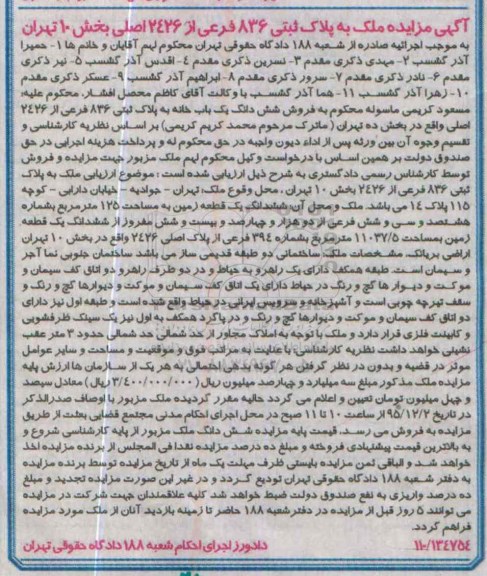 آگهی مزایده ملک به پلاک ثبتی ۸۳۶ فرعی از ۲۴۲۶ اصلی بخش ۱۰ تهران
به موجب اجرائیه صادره از شعبه ۱۸۸ دادگاه حقوقی تهران محکوم لهم آقایان و خانم ها ۱- حمیرا
آذر گشسب ۲- مهدی ذکری مقدم ۳- نسرین ذکری مقدم ۴- اقدس آذر گشسب ۵- نیر ذکری
مقدم ۶- نادر ذکری مقدم ۷- سرور ذکری مقدم ۸- ابراهیم آذر گشسب ۹- عسکر ذکری مقدم
۱۰- زهرا آذر گشسب ۱۱- هما آذر گشسب با وکالت آقای کاظم محصل افشار، محکوم علیه:
مسعود کریمی ماسوله محکوم به فروش شش دانگ یک باب خانه به پلاک ثبتی ۸۳۶ فرعی از ۲۴۲۶
اصلی واقع در بخش ده تهران (ماترک مرحوم محمد کریم کریمی) بر اساس نظریه کارشناسی و
تقسیم وجوه آن بین ورثه پس از اداء دیون واجبه در حق محکوم له و پرداخت هزینه اجرایی در حق
صندوق دولت بر همین اساس با درخواست وکیل محکوم لهم ملک مزبور جهت مزایده و فروش
توسط کارشناس رسمی دادگستری به شرح ذیل ارزیابی شده است: موضوع ارزیابی ملک به پلاک
ثبتی ۸۳۶ فرعی از ۲۴۲۶ بخش ۱۰ تهران، محل وقوع ملک: تهران - جوادیه - خیابان دارابی - کوچه
۱۱۵ پلاک ۱۴ می باشد. ملک و محل آن: ششدانگ یک قطعه زمین به مساحت ۱۲۵ مترمربع بشماره
هشتصد و سی و شش فرعی از دو هزار و چهارصد و بیست و شش مفروز از ششدانگ یک قطعه
زمین بمساحت ۱۱۰۳۷/۵ مترمربع بشماره ۳۹۴ فرعی از پلاک اصلی ۲۴۲۶ واقع در بخش ۱۰ تهران
اراضی بریانک. مشخصات ملک: ساختمانی دو طبقه قدیمی ساز می باشد ساختمان جنوبی نما آجر
و سیمان است. طبقه همکف دارای یک راهرو به حیاط و در دو طرف راهرو دو اتاق کف سیمان و
موکت و دیوار ها گچ و رنگ در حیاط دارای یک اتاق کف سیمان و موکت و دیوارها گچ و رنگ و
سقف تیرچه چوبی است و آشپزخانه و سرویس ایرانی در حیاط واقع شده است و طبقه اول نیز دارای
دو اتاق کف سیمان و موکت و دیوارها گچ و رنگ و در پاگرد همکف به اول نیز یک سینک ظرفشویی
و کابینت فلزی قرار دارد و ملک با توجه به املاک مجاور از حد شمالی حد شمالی حدود ۳ متر عقب
نشینی خواهد داشت نظریه کارشناسی: با عنایت به مراتب فوق و موقعیت و مساحت و سایر عوامل
موثر در قضیه و بدون در نظر گرفتن هر گونه بدهی احتمالی به هر یک از سازمان ها ارزش پایه
مزایده ملک مذکور مبلغ سه میلیارد و چهارصد میلیون ریال (۳/۴۰۰/۰۰۰/۰۰۰ ریال) معادل سیصد
و چهل میلیون تومان تعیین و اعلام می گردد حالیه مقرر گردیده ملک مزبور با اوصاف صدرالذکر
در تاریخ ۹۵/۱۲/۲ از ساعت ۱۰ تا ۱۱ صبح در محل اجرای احکام مدنی مجتمع قضایی بعثت از طریق
مزایده به فروش می رسد. قیمت پایه مزایده شش دانگ ملک مزبور از پایه کارشناسی شروع و
به بالاترین قیمت پیشنهادی فروخته و مبلغ ده درصد مزایده نقدا فی المجلس از برنده مزایده اخذ
خواهد شد و الباقی ثمن مزایده بایستی ظرف مهلت یک ماه از تاریخ مزایده توسط برنده مزایده
به دفتر شعبه ۱۸۸ دادگاه حقوقی تهران تودیع گردد و در غیر این صورت مزایده تجدید و مبلغ
ده درصد واریزی به نفع صندوق دولت ضبط خواهد شد کلیه علاقمندان جهت شرکت در مزایده
می توانند ۵ روز قبل از مزایده در دفتر شعبه ۱۸۸ حاضر تا زمینه بازدید آنان از ملک مورد مزایده
فراهم گردد.
۱۱۰/۱۳۴۷۵۴ دادورز اجرای احکام شعبه ۱۸۸ دادگاه حقوقی تهران